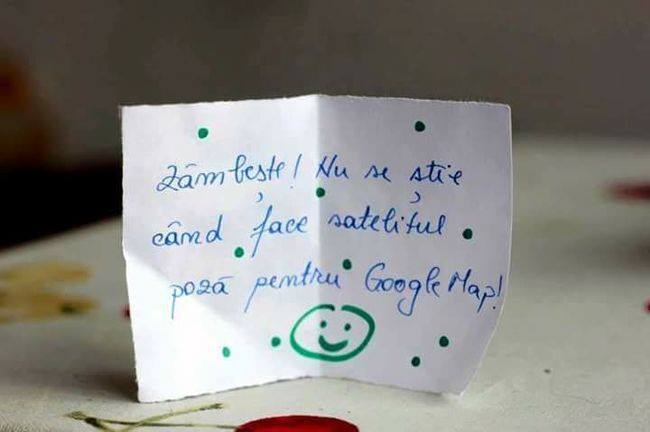 Zâmbește! Nu se știe
când face satelitul
poză pentru Google Map!